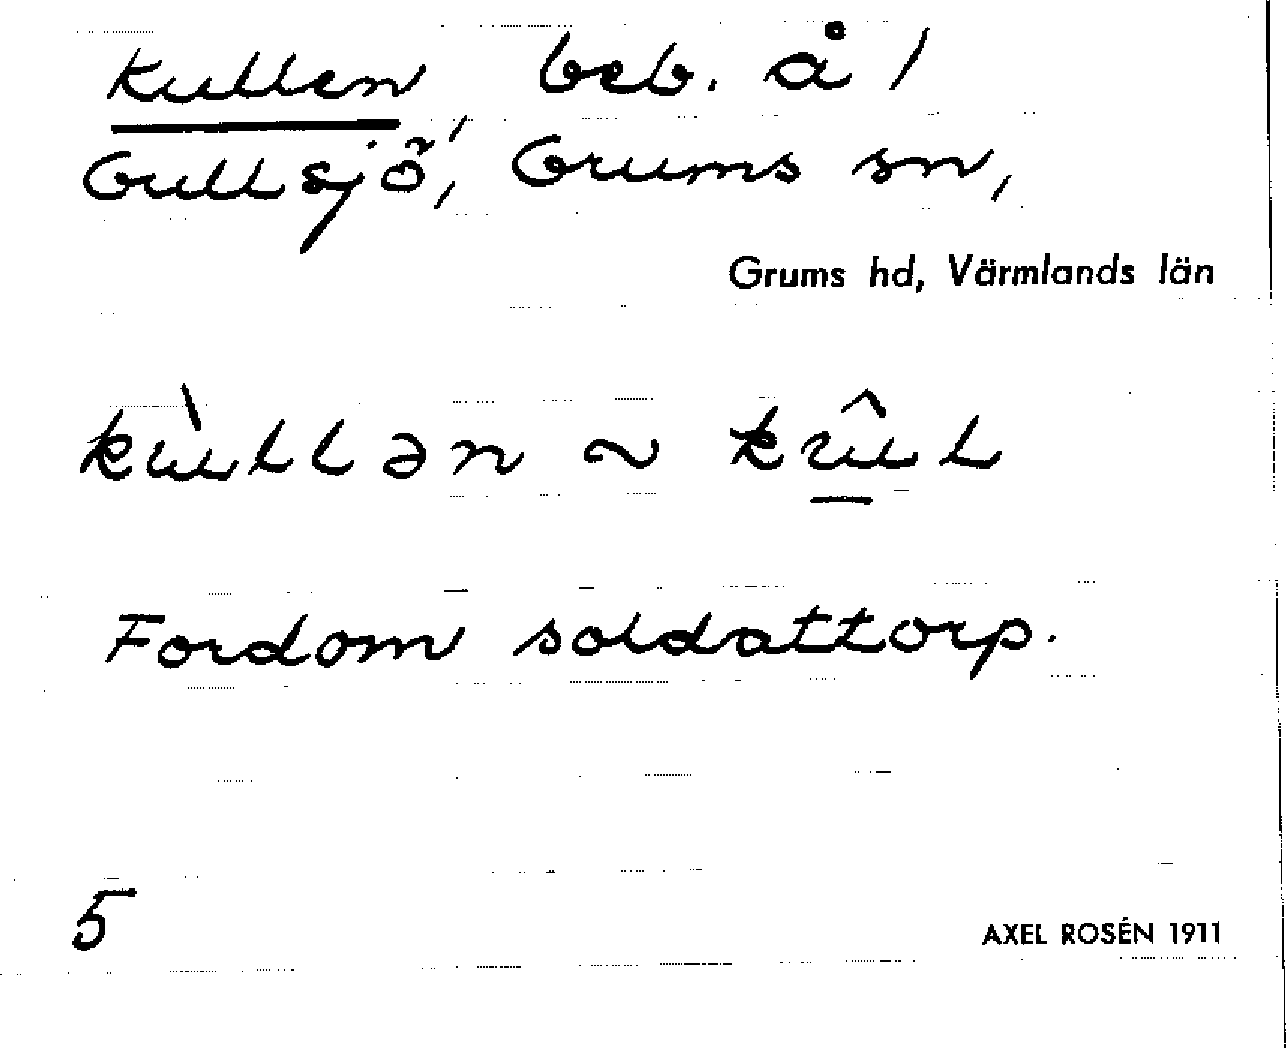 Kullen beb. å /
Gullsjö /, Grums sn,
Grums hd, Värmlands län
kùllən ~ kûl
Fordom soldattorp.
5
AXEL ROSÉN 1911